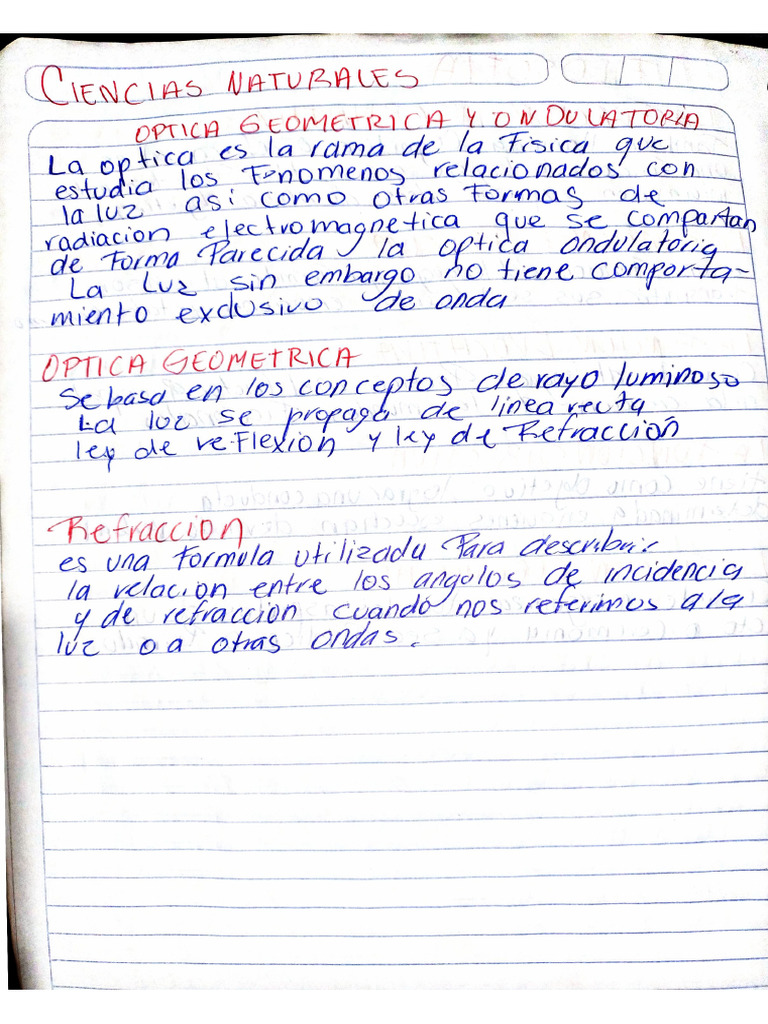 CIENCIAS NATURALES
OPTICA GEOMETRICA Y ONDULATORIA
La optica es la rama de la Fisica que
estudia los Fenomenos relacionados con
la luz así como otras Formas de
radiacion electromagnetica que se compartan
de Forma Parecida la optica ondulatoria
La Luz sin embargo no tiene comporta-
miento exclusivo de onda
OPTICA GEOMETRICA
Se basa en los conceptos de rayo luminoso
La luz se propaga de linea recta
ley de reflexion y ley de Refracción
Refraccion
es una Formula utilizada Para describir
la relacion entre los angulos de incidencia
y de refraccion cuando nos referimos a la
luz o a otras ondas.